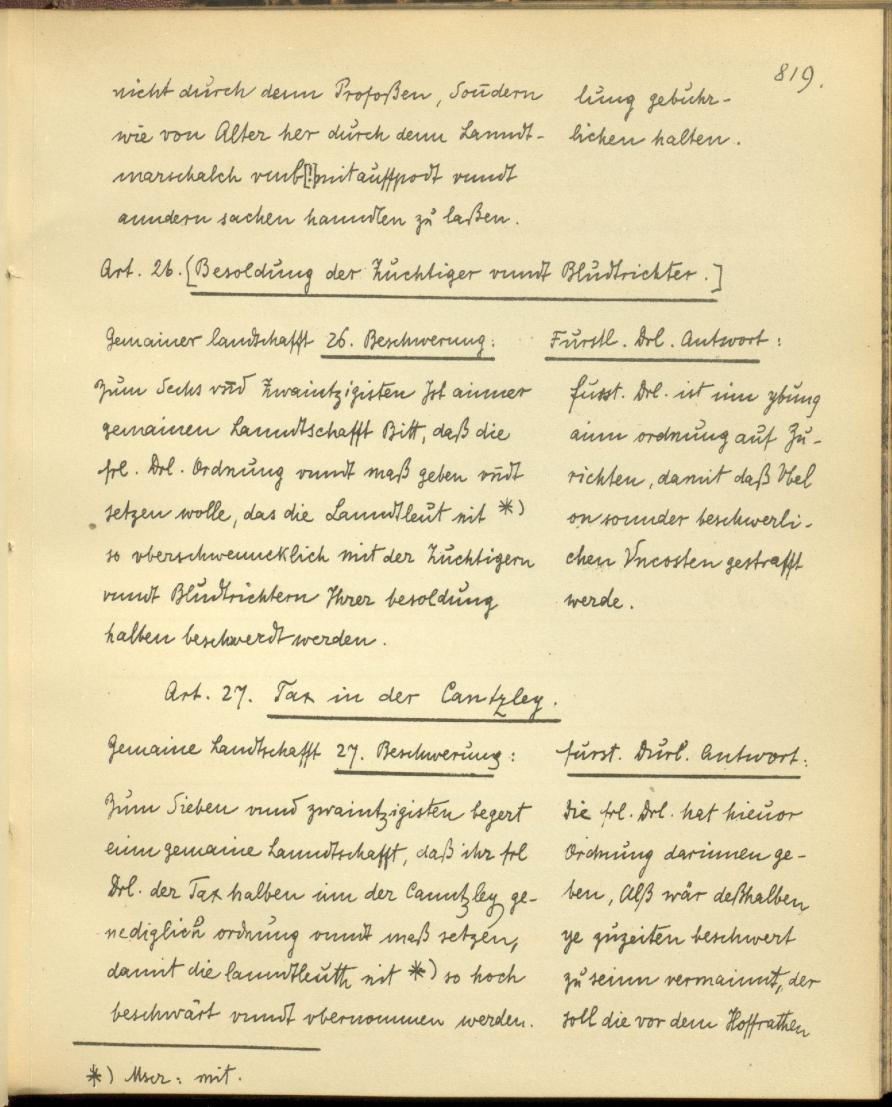 819.
nicht durch denn Profoßen, Sondern
wie von Alter her durch denn Lanndt-
marschalch vmb[!] mit auffpodt vnndt
anndern sachen hanndlen zu laßen.
lung gebuhr-
lichen halten.
Art. 26. [Besoldung der Zuchtiger vnndt Bludtrichter.]
Gemainer landtschafft 26. Beschwerung:
Zum Sechs vnd Zwaintzigisten Ist ainner
gemainen Lanndtschafft Bitt, daß die
frl. Drl. Ordnung vnndt maß geben vndt
setzen wolle, das die Lanndtleut nit *)
so vberschwenncklich mit der Zuchtigern
vnndt Bludtrichtern Ihrer besoldung
halben beschwerdt werden.
Furstl. Drl. Antwort:
furst. Drl. ist inn ybung
ainn ordnung auf Zu-
richten, damit daß Vbel
on sonnder beschwerli-
chen Vncosten gestrafft
werde.
Art. 27. Tax in der Cantzley.
Gemaine Landtschafft 27. Beschwerung:
Zum Sieben vnnd zwaintzigisten begert
einn gemaine Lanndtschafft, daß ihr frl
Drl. der Tax halben inn der Canntzley ge-
nediglich ordnung vnndt maß setzen,
damit die lanndtleuth nit *) so hoch
beschwärt vnndt vbernommen werden.
furst. Durl. Antwort:
Die frl. Drl. hat hieuor
Ordnung darinnen ge-
ben, Alß wär deßhalben
ye zuzeiten beschwert
zu seinn vermainnt, der
soll die vor dem Hoffrathen
*) Mscr: mit.